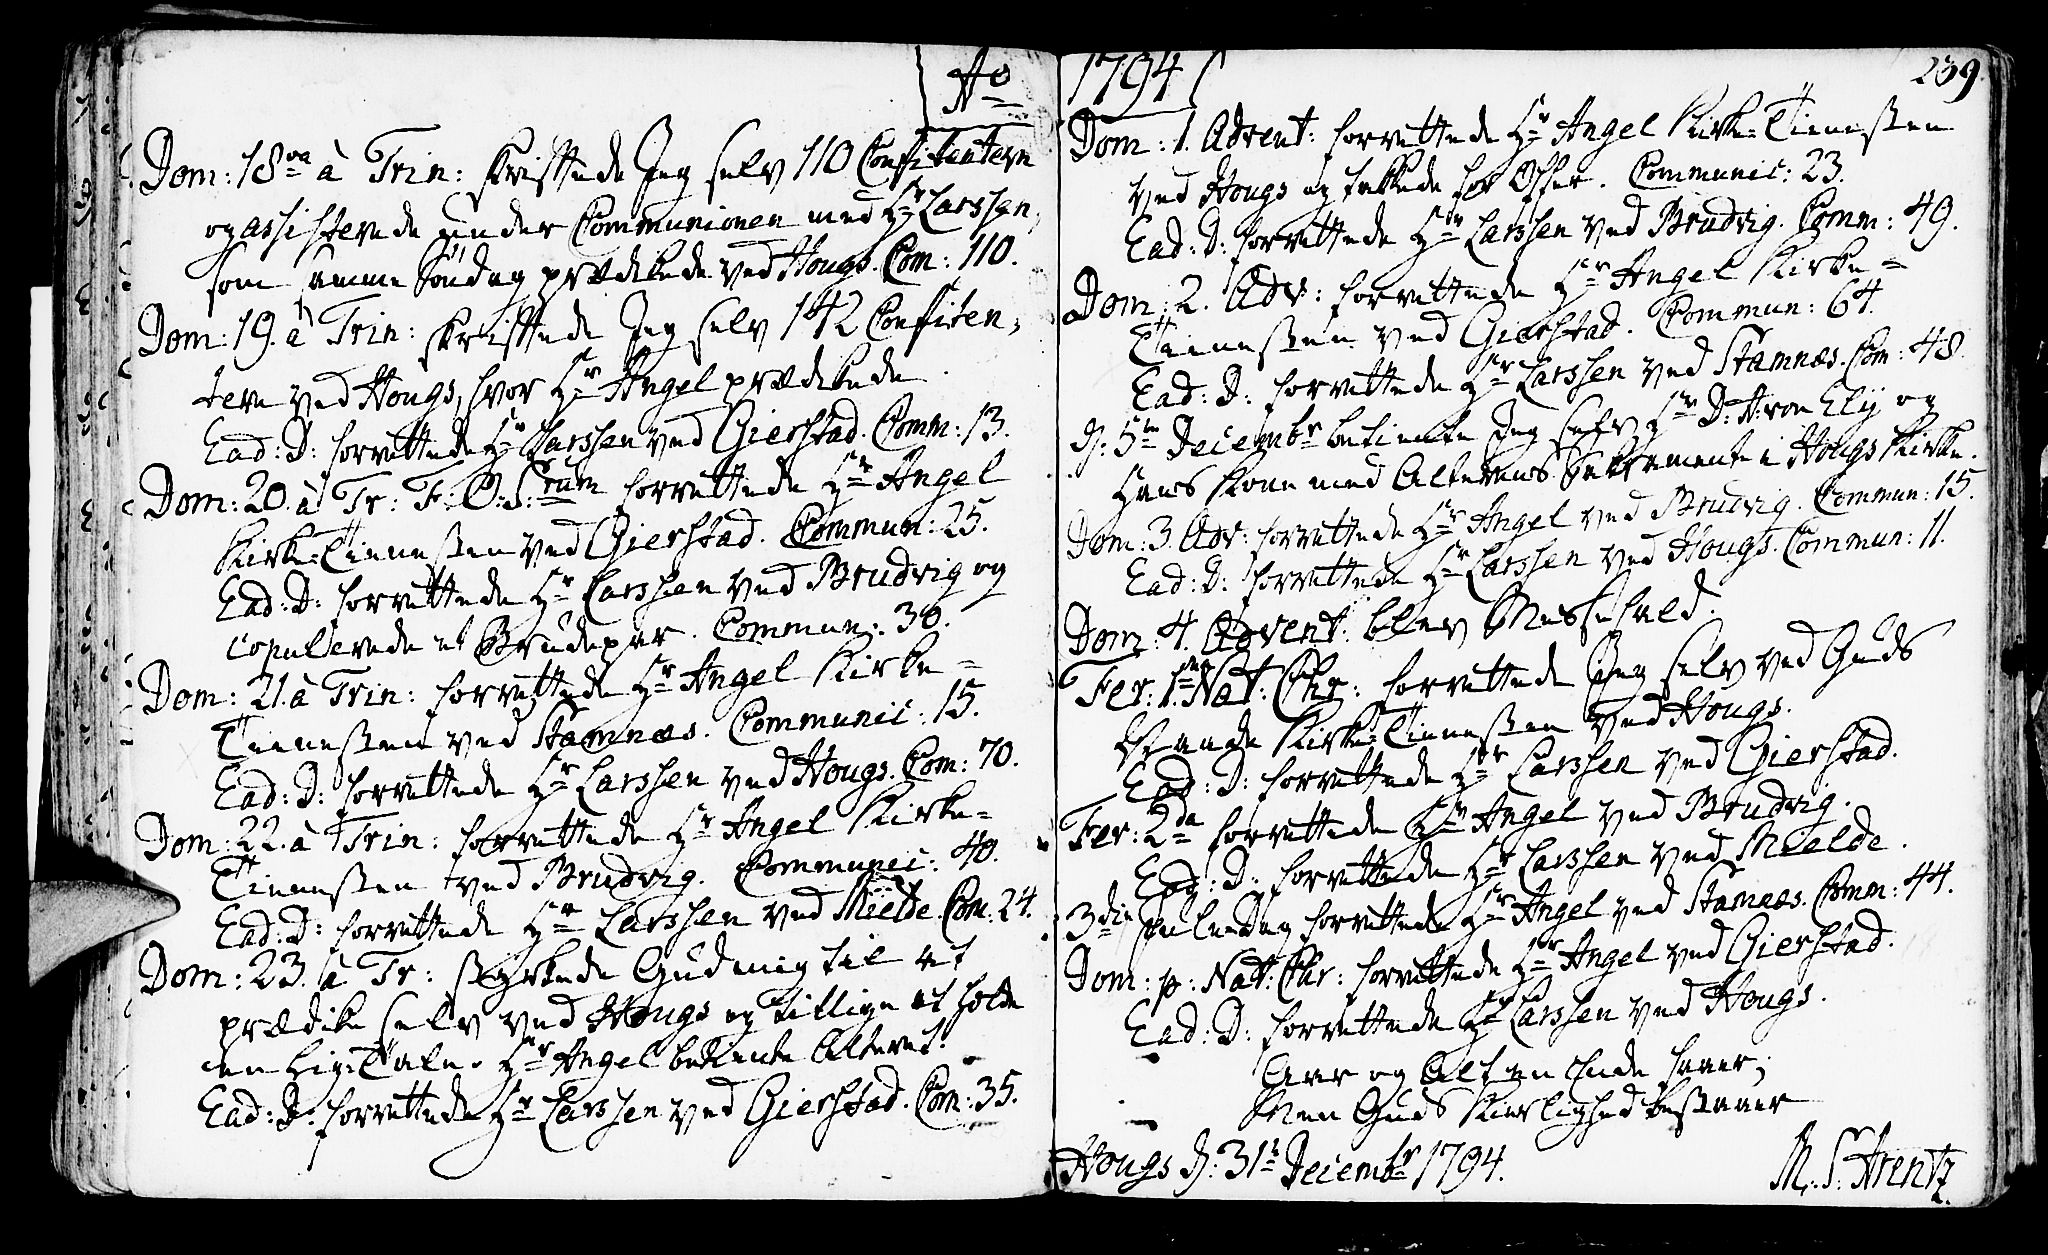 Ao
Dom: 18va à Trin: skriftede Jeg selv 110 Confitentern
og assisterede under Communionen med Hr Larssen,
som samme Søndag prædikede ved Hougs. Com: 110.
Dom: 19. à Trin: skriftede Jeg selv 142 Confiten,
tern ved Hougs, hvor Hr Angel prædikede.
Ead: D: forrettede Hr Larssen ved Gierstad. Comm: 13.
Dom: 20. à Tr: F. O. S.rum forrettede Hr Angel
Kirke-Tienesten ved Gierstad. Commun: 25.
Ead: D: forrettede Hr Larssen ved Brudvig og
copulerede et Brudepar. Commun: 30.
Dom: 21. à Trin: forrettede Hr Angel Kirke=
Tienesten ved Stamnæs. Communic: 15.
Ead: D: forrettede Hr Larssen ved Hougs. Com: 70.
Dom: 22. à Trin: forrettede Hr Angel Kirke=
Tienesten ved Brudvig. Communic: 40.
Ead: D: forrettede Hr Larssen ved Mielde. Com: 24.
Dom: 23. à Tr: styrkede Gud mig til at
prædike selv ved Hougs og tillige at holde
en Lig-Tale. Hr Angel betiente Alteret.
Ead: D: forrettede Hr Larssen ved Gierstad. Com: 35.
1794
239.
Dom: 1. Advent: forrettede Hr Angel Kirke-Tienesten
ved Hougs og takkede for Offer. Communic: 23.
Ead: D: forrettede Hr Larssen ved Brudvig. Comm: 49.
Dom: 2. Adv: forrettede Hr Angel Kirke=
Tienesten ved Gierstad. Commun: 64.
Ead: D: forrettede Hr Larssen ved Stamnæs. Com: 48.
D: 5te Decembr betiente Jeg selv Hr D: A: von Elÿ og
Hans Kone med Alterens Sakramente i Hougs Kirke.
Dom: 3. Adv: forrettede Hr Angel ved Brudvig. Commun: 15.
Ead: D: forrettede Hr Larssen ved Hougs. Commun: 11.
Dom: 4. Advent: blev Messefald.
Fer: 1. Nat: Chr: forrettede Jeg selv ved Guds
Naade Kirke-Tienesten ved Hougs.
Ead: D: forrettede Hr Larssen ved Gierstad.
Fer: 2da forrettede Hr Angel ved Brudvig.
Ead: D: forrettede Hr Larssen ved Mielde.
3die Jule-Dag forrettede Hr Angel ved Stamnæs. Comm: 44.
Dom: p: Nat: Chr: forrettede Hr Angel ved Gierstad.
Ead: D: forrettede Hr Larssen ved Hougs.
Aar og Alt en Ende faaer;
Men Guds Kierlighed bestaaer
Hougs D: 31te Decembr 1794.
M. S. Arentz.